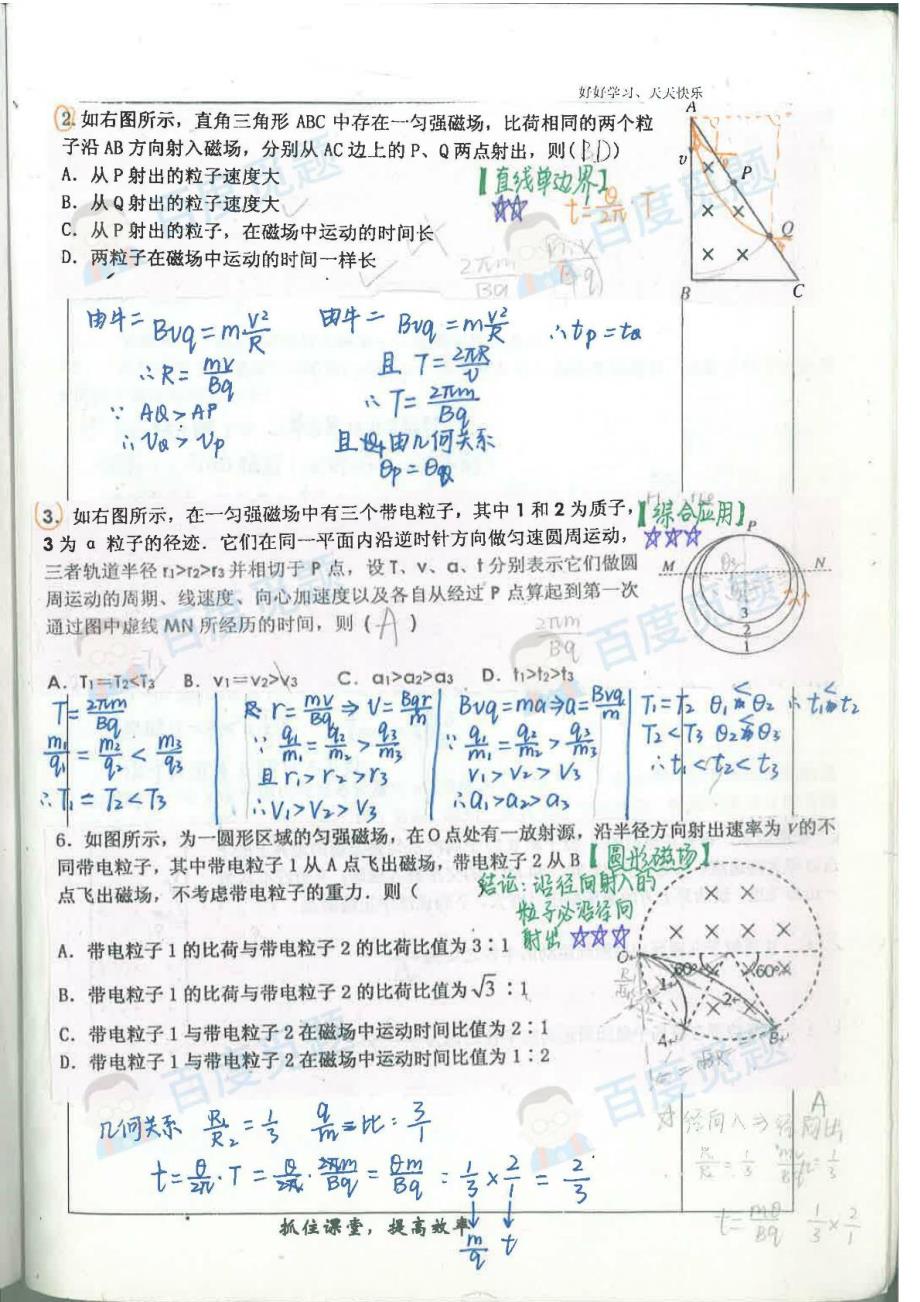 好好学习、天天快乐
2. 如右图所示，直角三角形 ABC 中存在一匀强磁场，比荷相同的两个粒
子沿 AB 方向射入磁场，分别从 AC 边上的 P、Q 两点射出，则(BD)
A．从 P 射出的粒子速度大
【直线单边界】
B．从 Q 射出的粒子速度大
☆☆
t=θ/2π T
C．从 P 射出的粒子，在磁场中运动的时间长
D．两粒子在磁场中运动的时间一样长
2πm/Bq
mv/Bq
A
v
P
Q
B
C
由牛二 Bvq=m v²/R
∴R=mv/Bq
∵ AQ>AP
∴VQ>VP
由牛二 Bvq=m v²/R
且 T=2πR/v
∴T=2πm/Bq
由几何关系
θP=θQ
∴tP=tQ
3. 如右图所示，在一匀强磁场中有三个带电粒子，其中 1 和 2 为质子，
【综合应用】
3 为 α 粒子的径迹．它们在同一平面内沿逆时针方向做匀速圆周运动，
☆☆☆
三者轨道半径 r₁>r₂>r₃ 并相切于 P 点，设 T、v、a、t 分别表示它们做圆
周运动的周期、线速度、向心加速度以及各自从经过 P 点算起到第一次
通过图中虚线 MN 所经历的时间，则（ A ）
2πm/Bq
P
M
N
3
2
1
A．T₁=T₂<T₃ B．v₁=v₂>v₃ C．a₁>a₂>a₃ D．t₁>t₂>t₃
T=2πm/Bq
m₁/q₁=m₂/q₂<m₃/q₃
∴T₁=T₂<T₃
r=mv/Bq⇒V=Bqr/m
∵ q₁/m₁=q₂/m₂>q₃/m₃
且 r₁>r₂>r₃
∴V₁>V₂>V₃
Bvq=ma⇒a=Bvq/m
∵ q₁/m₁=q₂/m₂>q₃/m₃
V₁>V₂>V₃
∴a₁>a₂>a₃
T₁=T₂ θ₁<θ₂ ∴t₁<t₂
T₂<T₃ θ₂<θ₃
∴t₁<t₂<t₃
6．如图所示，为一圆形区域的匀强磁场，在 O 点处有一放射源，沿半径方向射出速率为 v 的不
同带电粒子，其中带电粒子 1 从 A 点飞出磁场，带电粒子 2 从 B
【圆形磁场】
点飞出磁场，不考虑带电粒子的重力，则（
结论：沿径向射入的
粒子必沿径向
射出 ☆☆☆
A．带电粒子 1 的比荷与带电粒子 2 的比荷比值为 3∶1
B．带电粒子 1 的比荷与带电粒子 2 的比荷比值为√3∶1
C．带电粒子 1 与带电粒子 2 在磁场中运动时间比值为 2∶1
D．带电粒子 1 与带电粒子 2 在磁场中运动时间比值为 1∶2
O
60°
60°
1
2
A
B
几何关系 R₁/R₂=1/3 q/m=比：3/1
t=θ/2π·T=θ/2π·2πm/Bq=θm/Bq=1/3×2/1=2/3
m/q t
A
对径向入⇒径向出
R₁/R₂=1/3
t=mθ/Bq 1/3×2/1
抓住课堂，提高效率
百度觅题
百度觅题
百度觅题
百度觅题
百度觅题
百度觅题